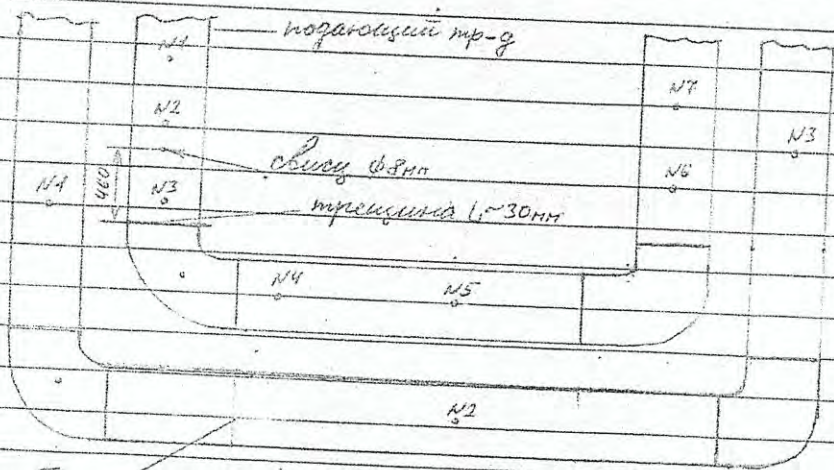 подающий тр-д
N1
N7
N2
N3
свищ ф8мм
460
N3
N6
N1
трещина l~30мм
N4
N5
N2